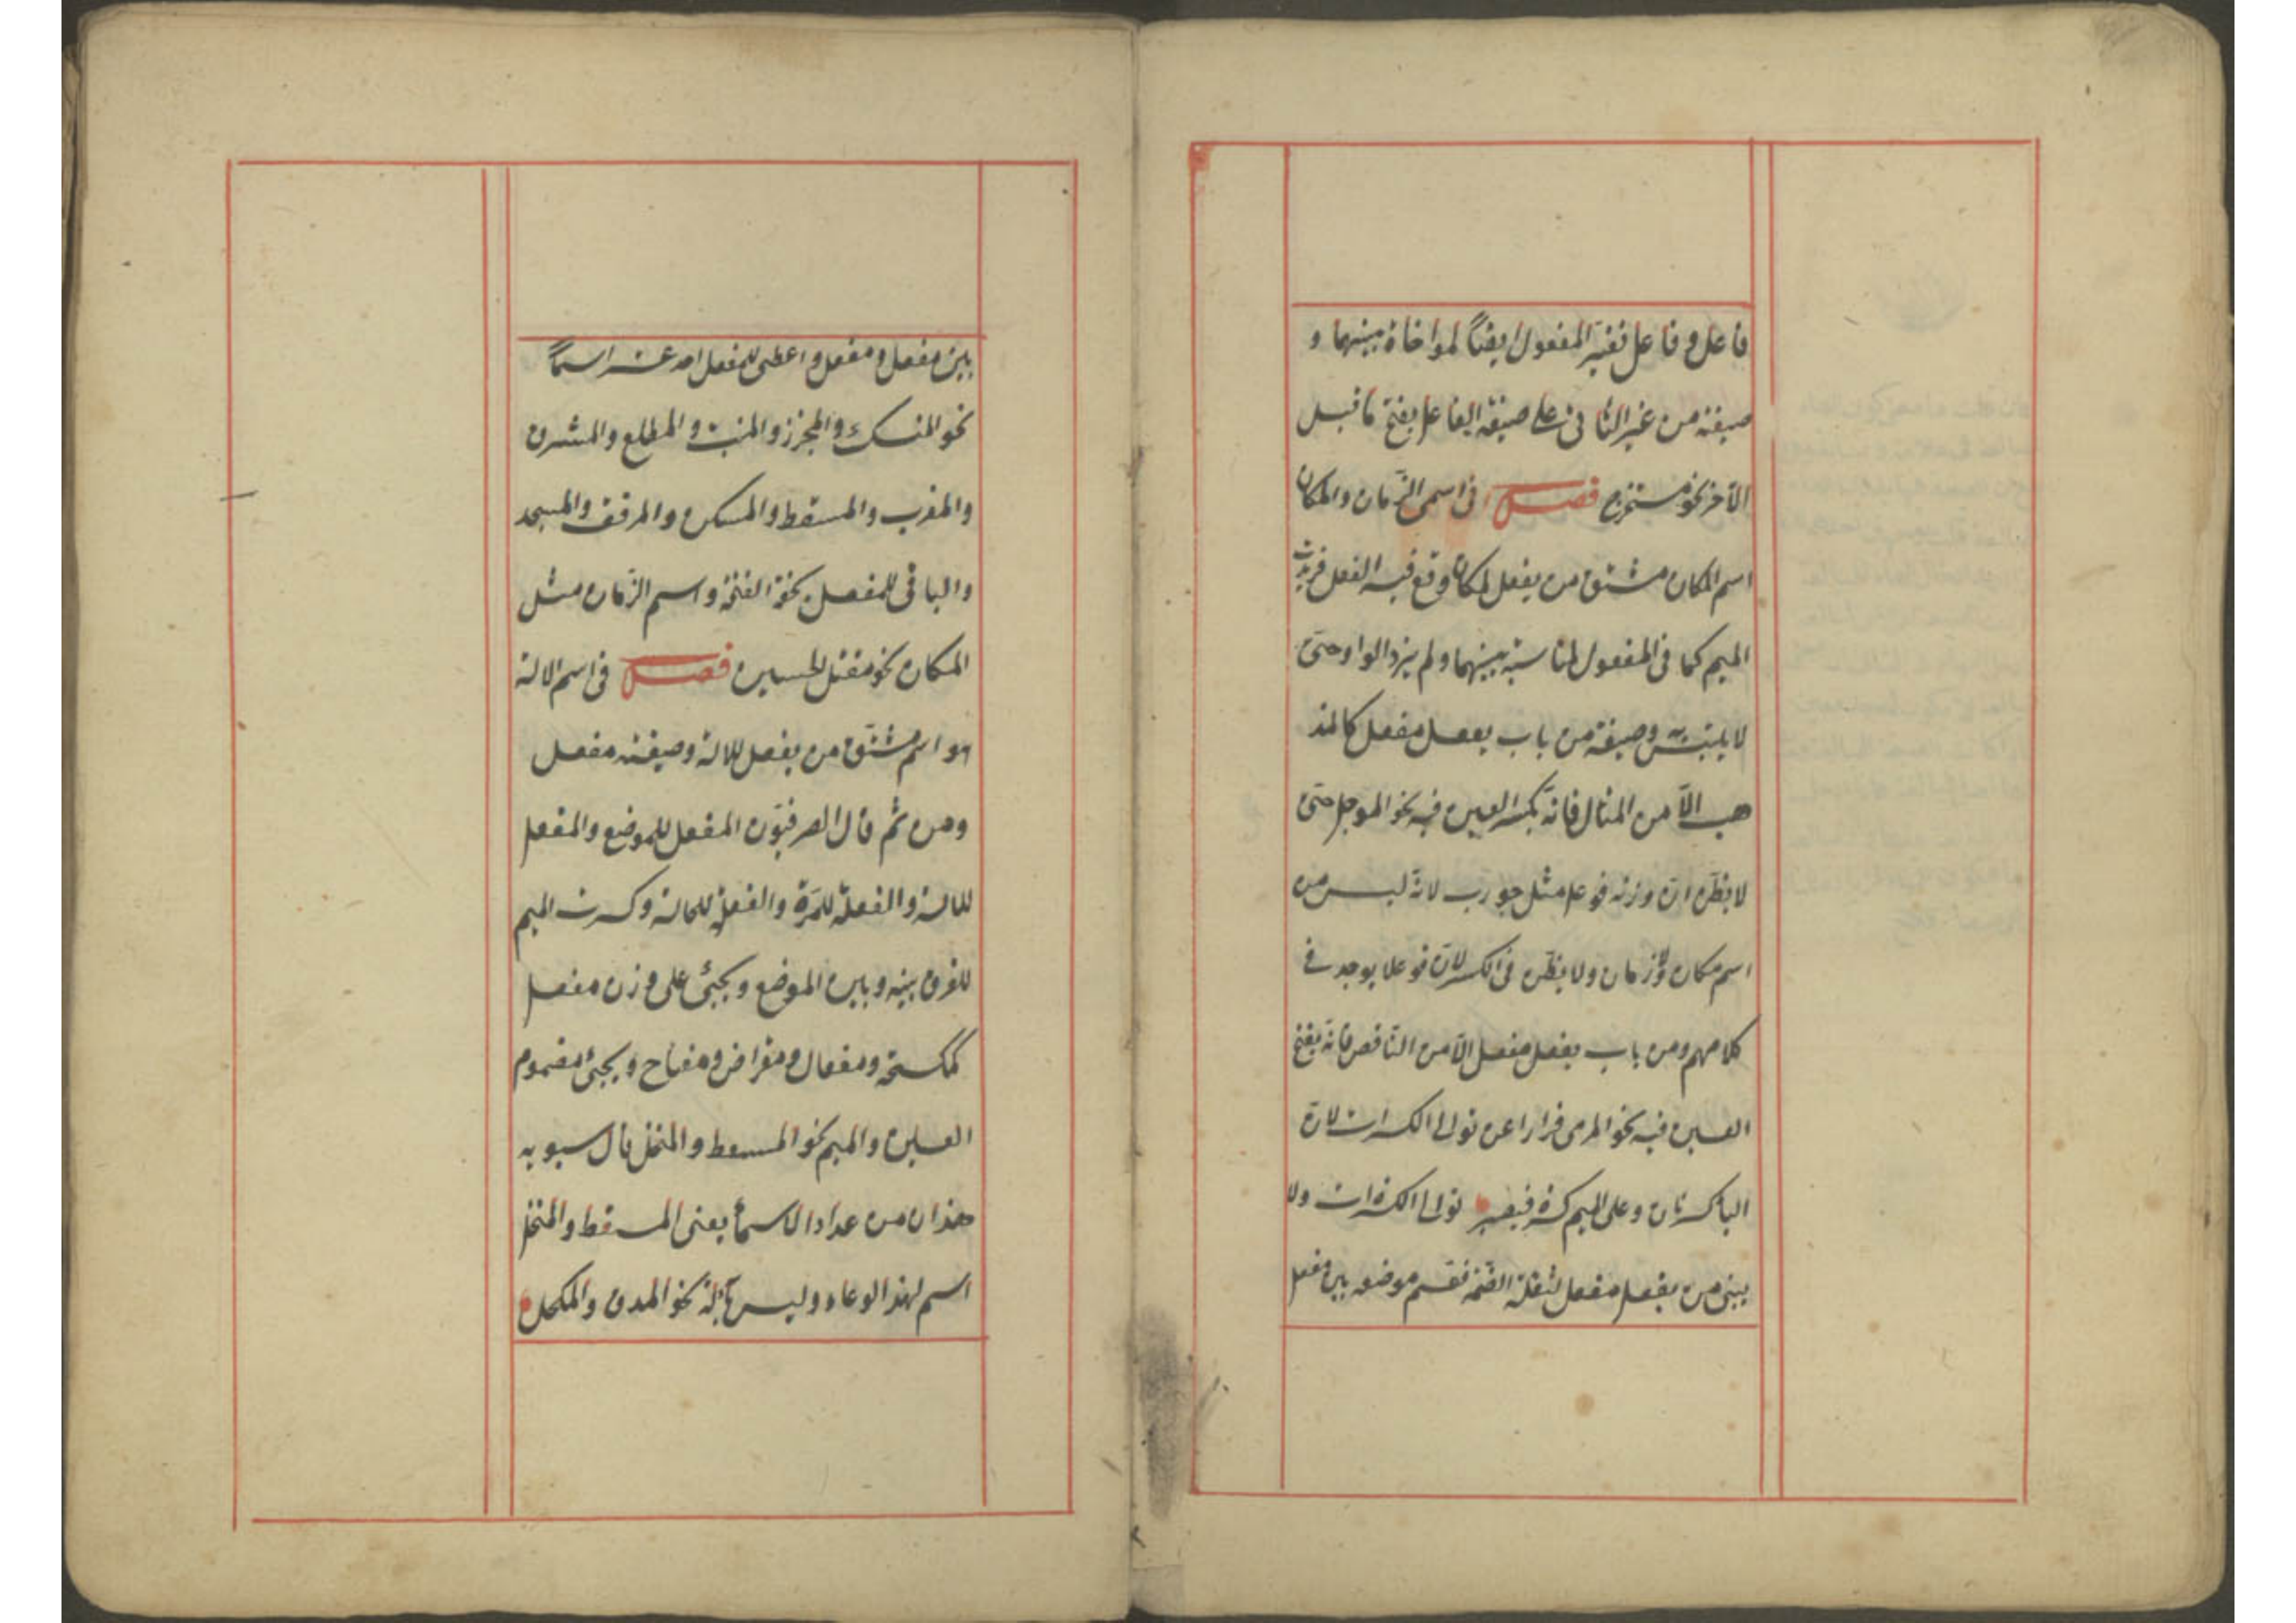 فاعل وفاعل فغير المفعول ايضًا لمواخاة بينهما و
صيغته من غير الثلاثى على صيغة الفاعل بفتح ما قبل
الآخر نحو مستخرج فصل فى اسمى الزّمان والمكان
اسم المكان مشتق من يفعل لمكان وقع فيه الفعل فزيدت
الميم كما فى المفعول لمناسبة بينهما ولم يزد الواو حتّى
لا يلتبس به وصيغته من باب يفعل مفعل كالمذ
هب الّا من المثال فانّه بكسر العين فيه نحو الموجل حتّى
لا يظنّ انّ وزنه فوعل مثل جورب لانّه ليس من
اسم مكان ولا زمان ولا يظنّ فى الكسر لانّ فوعلا يوجد فى
كلامهم ومن باب يفعل مفعل الّا من النّاقص فانّه يفتح
العين فيه نحو المرمى فرارا عن توالى الكسرات لانّ
اليا كسرتان وعلى الميم كسرة فيصير توالى الكسرات ولا
يبنى من يفعل مفعل لثقلة الضّمّة فقسم موضعه بين مفعل
بين مفعل ومفعل واعطى للمفعل احد عشر اسمًا
نحو المنسك والمجزر والمنبت والمطلع والمشرق
والمغرب والمسقط والمسكن والمرفق والمسجد
والباقى للمفعل لخفّة الفتحة واسم الزّمان مثل
المكان نحو مقتل الحسين فصل فى اسم الالة
هو اسم مشتق من يفعل للالة وصيغته مفعل
ومن ثمّ قال الصرفيّون المفعل للموضع والمفعل
للالة والفعلة للمرّة والفعلة للحالة وكسرت الميم
للفرق بينه وبين الموضع ويجئ على وزن مفعل
كمكسحة ومفعال ومقراض ومفتاح ويجئ مضموم
العين والميم نحو المسعط والمنخل قال سيبويه
هذان من عداد الاسمأ يعنى المسقط والمنخل
اسم لهذ الوعاء وليس بآلة نحو المدق والمكحل